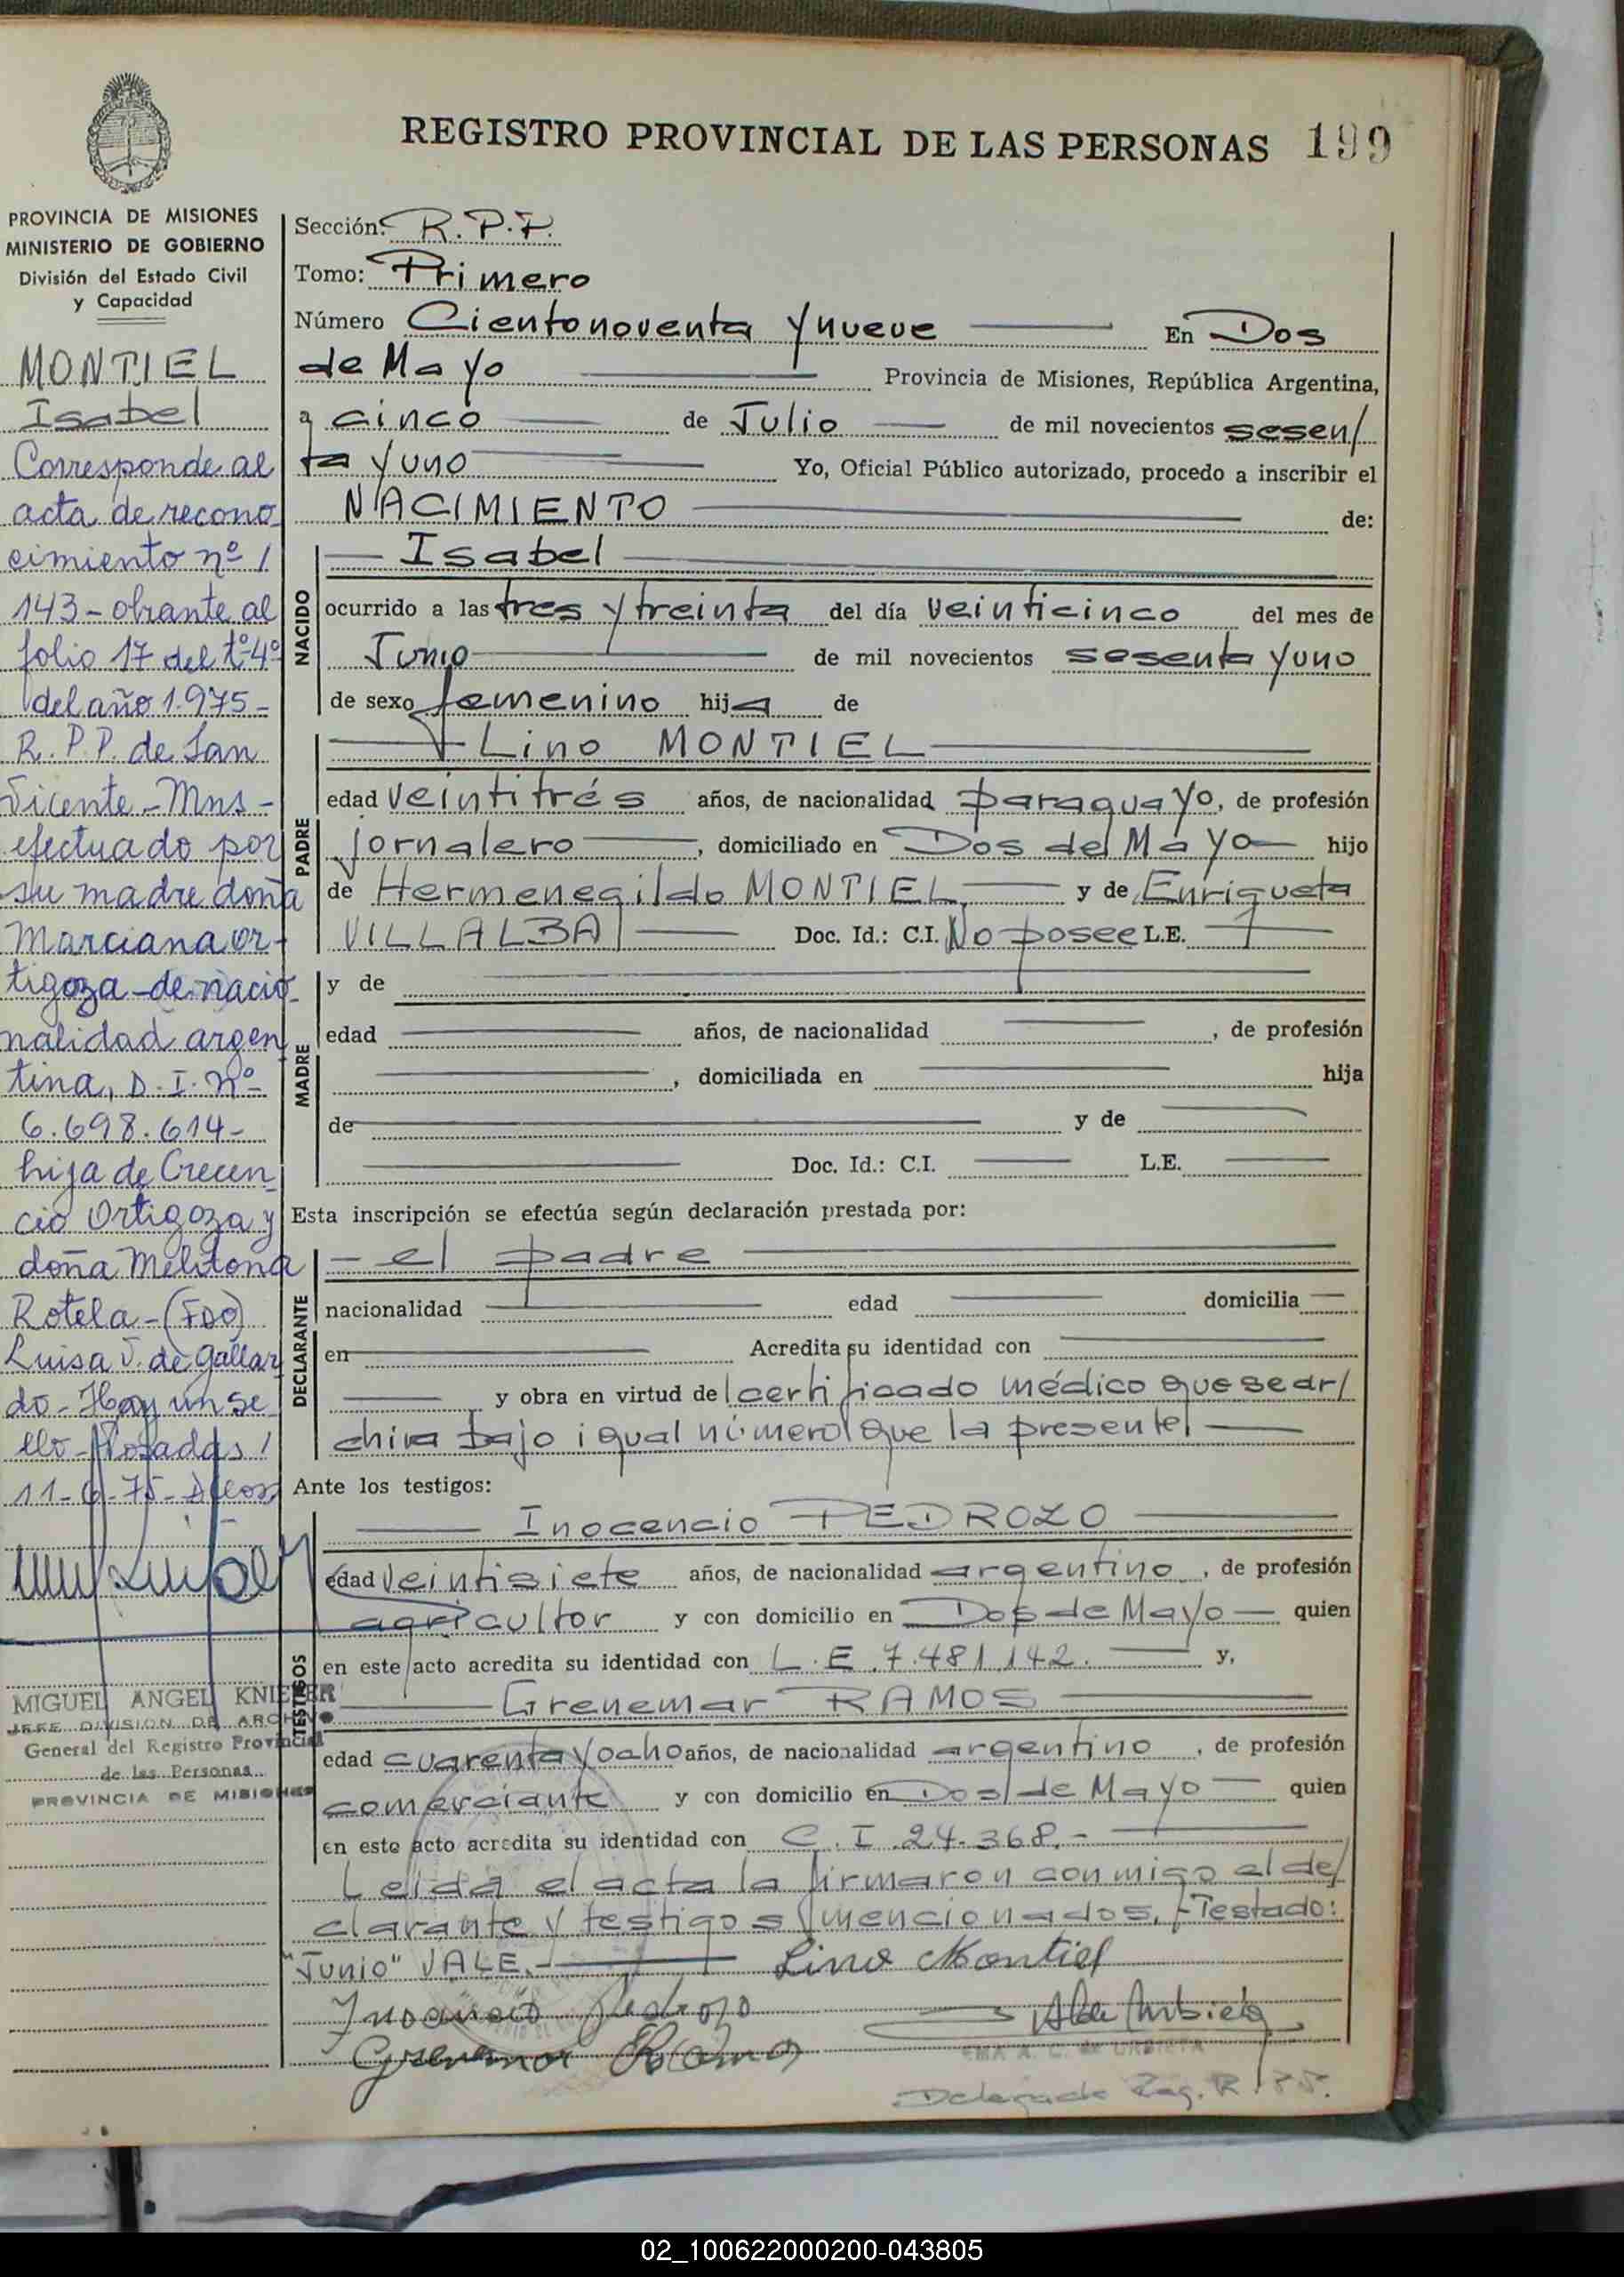 REGISTRO PROVINCIAL DE LAS PERSONAS 199
PROVINCIA DE MISIONES
MINISTERIO DE GOBIERNO
División del Estado Civil
y Capacidad
MONTIEL
Isabel
Corresponde al
acta de recono
cimiento nº /
143 - obrante al
folio 17 del tº 4º
del año 1.975 -
R. P. P. de San
Vicente - Mns -
efectuado por
su madre doña
Marciana Or-
tigoza - de nacio-
nalidad argen
tina, D. I. nº
6.698.614 -
hija de Crecen
cio Ortigoza y
doña Melitona
Rotela - (FDO)
Luisa V. de Gallar
do - Hay un se
llo - Posadas /
11-6-75-
MIGUEL ANGEL KNIEFER
JEFE DIVISION DE ARCHIVO
General del Registro Provincial
de las Personas
PROVINCIA DE MISIONES
Sección: R. P. P.
Tomo: Primero
Número Ciento noventa y nueve En Dos
de Mayo Provincia de Misiones, República Argentina,
a cinco de Julio de mil novecientos sesen/
ta y uno Yo, Oficial Público autorizado, procedo a inscribir el
NACIMIENTO de:
NACIDO
Isabel
ocurrido a las tres y treinta del día veinticinco del mes de
Junio de mil novecientos sesenta y uno
de sexo femenino hija de
PADRE
Lino MONTIEL
edad veintitrés años, de nacionalidad paraguayo, de profesión
jornalero, domiciliado en Dos de Mayo hijo
de Hermenegildo MONTIEL y de Enriqueta
VILLALBA Doc. Id.: C.I. No posee L.E.
MADRE
y de
edad años, de nacionalidad , de profesión
, domiciliada en hija
de y de
Doc. Id.: C.I. L.E.
Esta inscripción se efectúa según declaración prestada por:
DECLARANTE
- el padre
nacionalidad edad domicilia
en Acredita su identidad con
y obra en virtud de certificado médico que se ar/
chiva bajo igual número que la presente
Ante los testigos:
TESTIGOS
Inocencio PEDROZO
edad veintisiete años, de nacionalidad argentino, de profesión
agricultor y con domicilio en Dos de Mayo quien
en este acto acredita su identidad con L.E. 7.481.142. y,
Grenemar RAMOS
edad cuarenta y ocho años, de nacionalidad argentino, de profesión
comerciante y con domicilio en Dos de Mayo quien
en este acto acredita su identidad con C.I. 24.368.-
Leida el acta la firmaron conmigo el de/
clarante y testigos mencionados.- Testado:
"Junio" VALE.- Lino Montiel
Inocencio Pedrozo
Grenemar Ramos
EMA A. C. de URBIETA
02_100622000200-043805